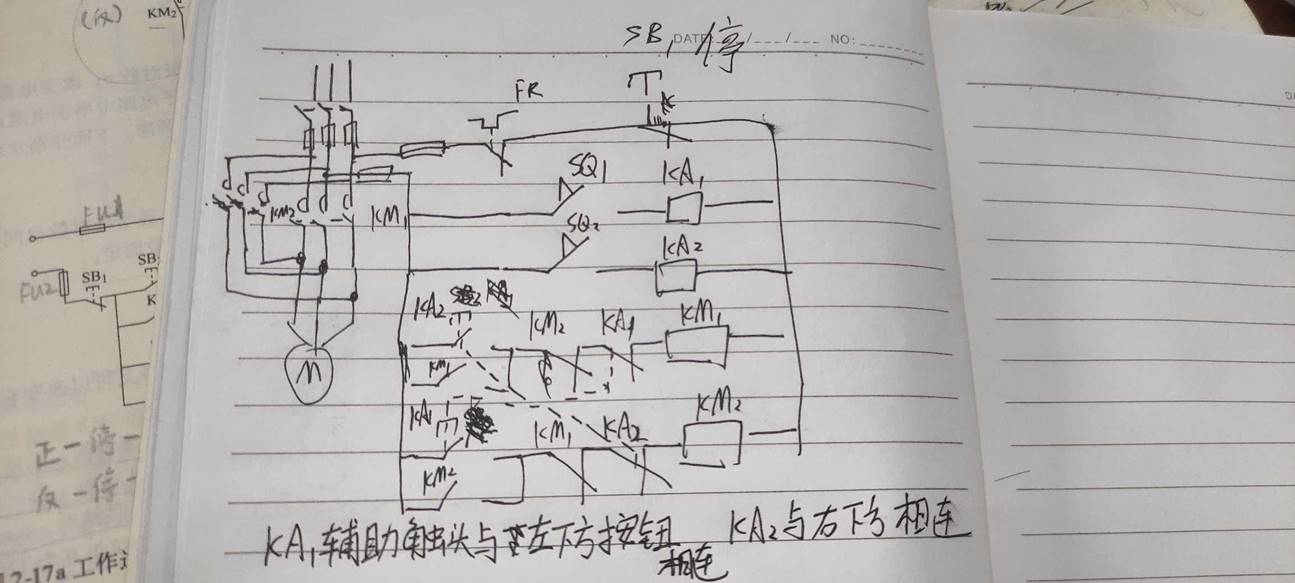 (仅)
KM₂
SB₁ 停
DATE: / / NO:
FR
SQ₁
KA₁
KM₂
KM₁
SQ₂
KA₂
FU1
SB₁
SB
FU2
K
KA₂
KM₂
KA₁
KM₁
KM₁
M
KA₁
KM₁
KA₂
KM₂
KM₂
正一停一
反一停一
KA₁辅助触头与左下方按钮相连
KA₂与右下方相连
2-17a 工作